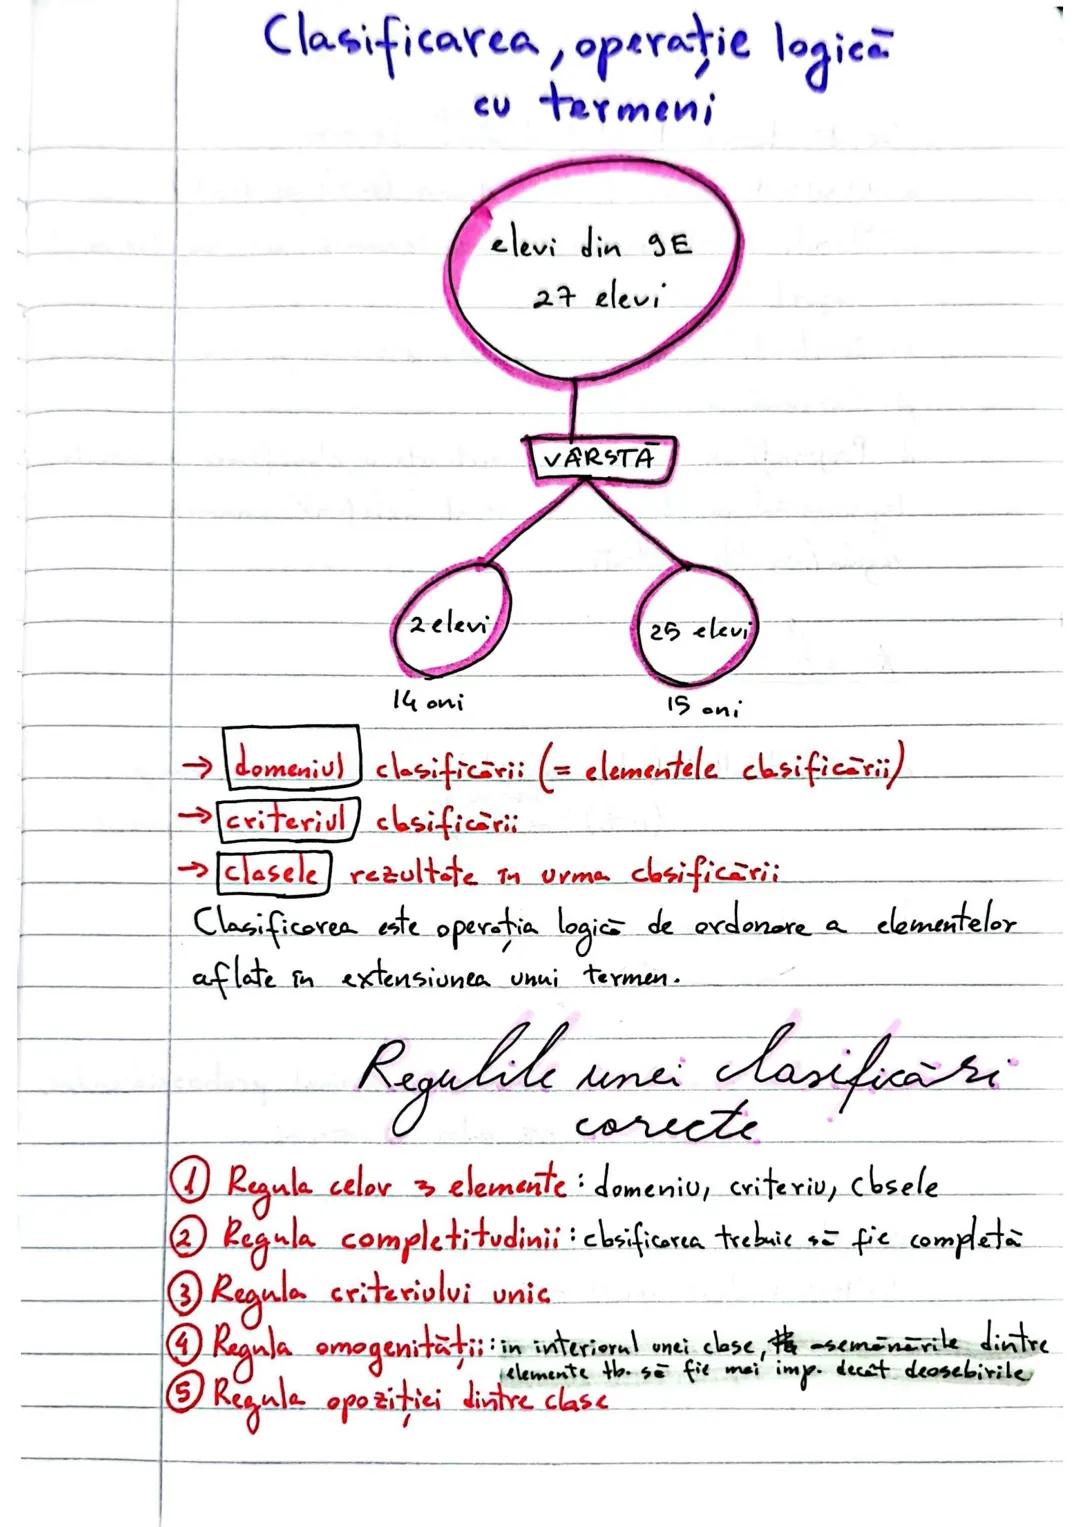 Clasificarea, operație logică
cu termeni
elevi din 9E
27 elevi
VÂRSTĂ
2 elevi
25 elevi
14 ani
15 ani
→ domeniul clasificării (= elementele clasificării)
→ criteriul clasificării
→ clasele rezultate în urma clasificării
Clasificarea este operația logică de ordonare a elementelor
aflate în extensiunea unui termen.
Regulile unei clasificări
corecte
1 Regula celor 3 elemente: domeniu, criteriu, clasele
2 Regula completitudinii: clasificarea trebuie să fie completă
3 Regula criteriului unic
4 Regula omogenității: în interiorul unei clase, asemănările dintre
elemente tb. să fie mai imp. decât deosebirile
5 Regula opoziției dintre clase